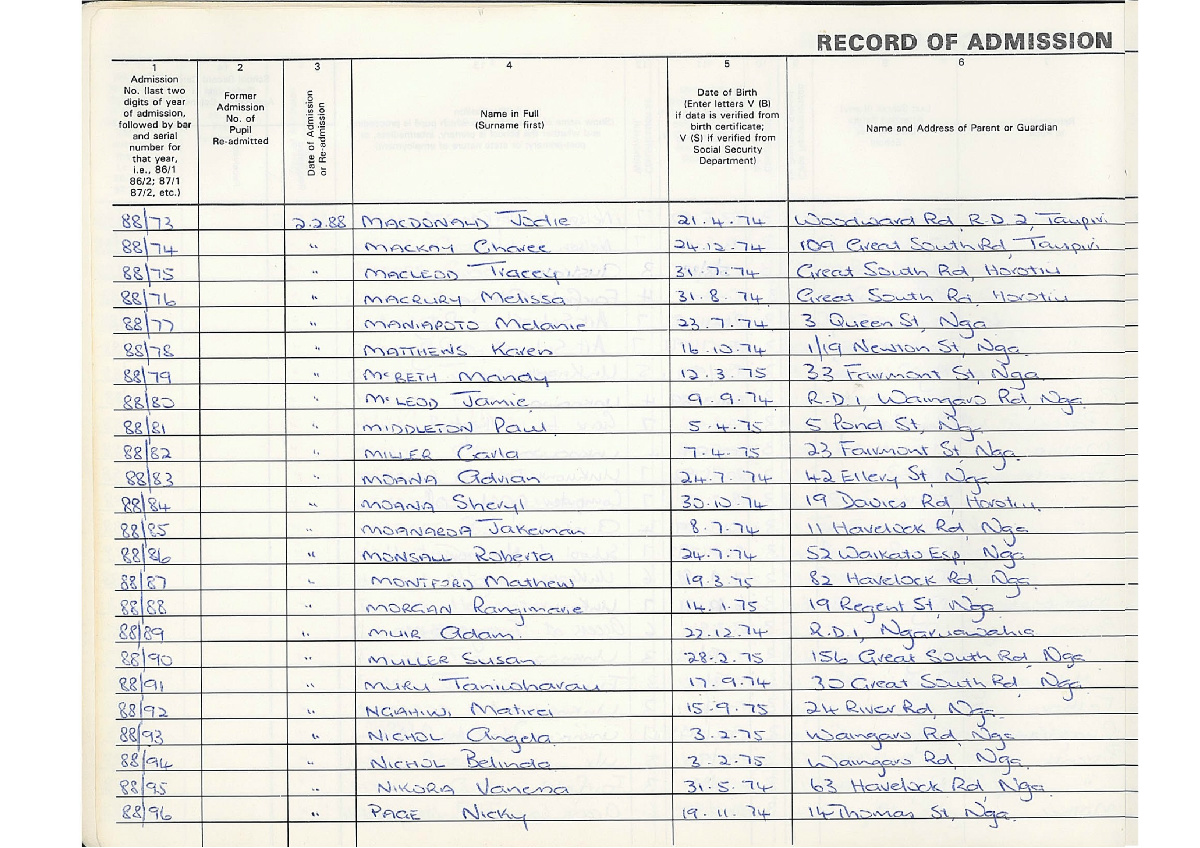 RECORD OF ADMISSION
1 2 3 4 5 6
Admission No. (last two digits of year of admission, followed by bar and serial number for that year, i.e., 86/1 86/2; 87/1 87/2, etc.)
Former Admission No. of Pupil Re-admitted
Date of Admission or Re-admission
Name in Full (Surname first)
Date of Birth (Enter letters V (B) if data is verified from birth certificate; V (S) if verified from Social Security Department)
Name and Address of Parent or Guardian
88/73 2.2.88 MACDONALD Jodie 21.4.74 Woodward Rd, R.D. 2, Taupiri
88/74 " MACKAY Charee 24.12.74 109 Great South Rd, Taupiri
88/75 " MACLEOD Tracey 31.7.74 Great South Rd, Horotiu
88/76 " MACRURY Melissa 31.8.74 Great South Rd, Horotiu
88/77 " MANIAPOTO Melanie 23.7.74 3 Queen St, Nga
88/78 " MATTHEWS Karen 16.10.74 1/19 Newton St, Nga.
88/79 " McBETH Mandy 12.3.75 33 Fairmont St, Nga.
88/80 " McLEOD Jamie 9.9.74 R.D.1, Waingaro Rd, Nga.
88/81 " MIDDLETON Paul 5.4.75 5 Pond St, Nga.
88/82 " MILLER Carla 7.4.75 23 Fairmont St, Nga.
88/83 " MOANA Adrian 24.7.74 42 Ellery St, Nga
88/84 " MOANA Sheryl 30.10.74 19 Davies Rd, Horotiu.
88/85 " MOANAROA Jakeman 8.7.74 11 Havelock Rd, Nga
88/86 " MONSALL Roberta 24.7.74 52 Waikato Esp, Nga
88/87 " MONTFORD Mathew 19.3.75 82 Havelock Rd, Nga.
88/88 " MORGAN Rangimarie 14.1.75 19 Regent St, Nga
88/89 " MUIR Adam. 22.12.74 R.D.1, Ngaruawahia
88/90 " MULLER Susan 28.2.75 156 Great South Rd, Nga
88/91 " MURU Taniwharau 17.9.74 30 Great South Rd, Nga.
88/92 " NGAHIWI Matirei 15.9.75 24 River Rd, Nga.
88/93 " NICHOL Angela 3.2.75 Waingaro Rd, Nga
88/94 " NICHOL Belinda 3.2.75 Waingaro Rd, Nga
88/95 " NIKORA Vanessa 31.5.74 63 Havelock Rd, Nga.
88/96 " PAGE Nicky 19.11.74 14 Thomas St, Nga.